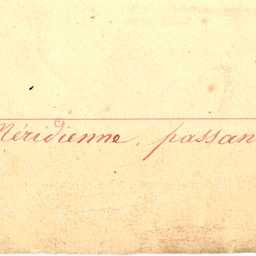 Méridienne, passan